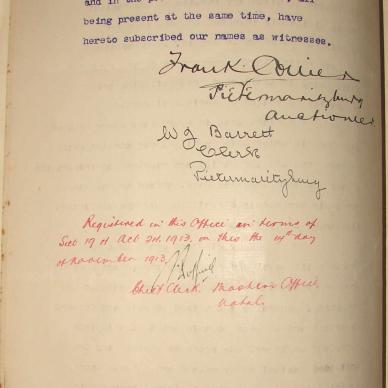 and in the
being present at the same time, have
hereto subscribed our names as witnesses.
Frank Collier
Pietermaritzburg
Auctioneer
W J Barrett
Clerk
Pietermaritzburg
Registered in this Office in terms of
Sec 19 of Act 24, 1913, on this the 14th day
of November 1913.
Chief Clerk. Masters Office,
Natal.